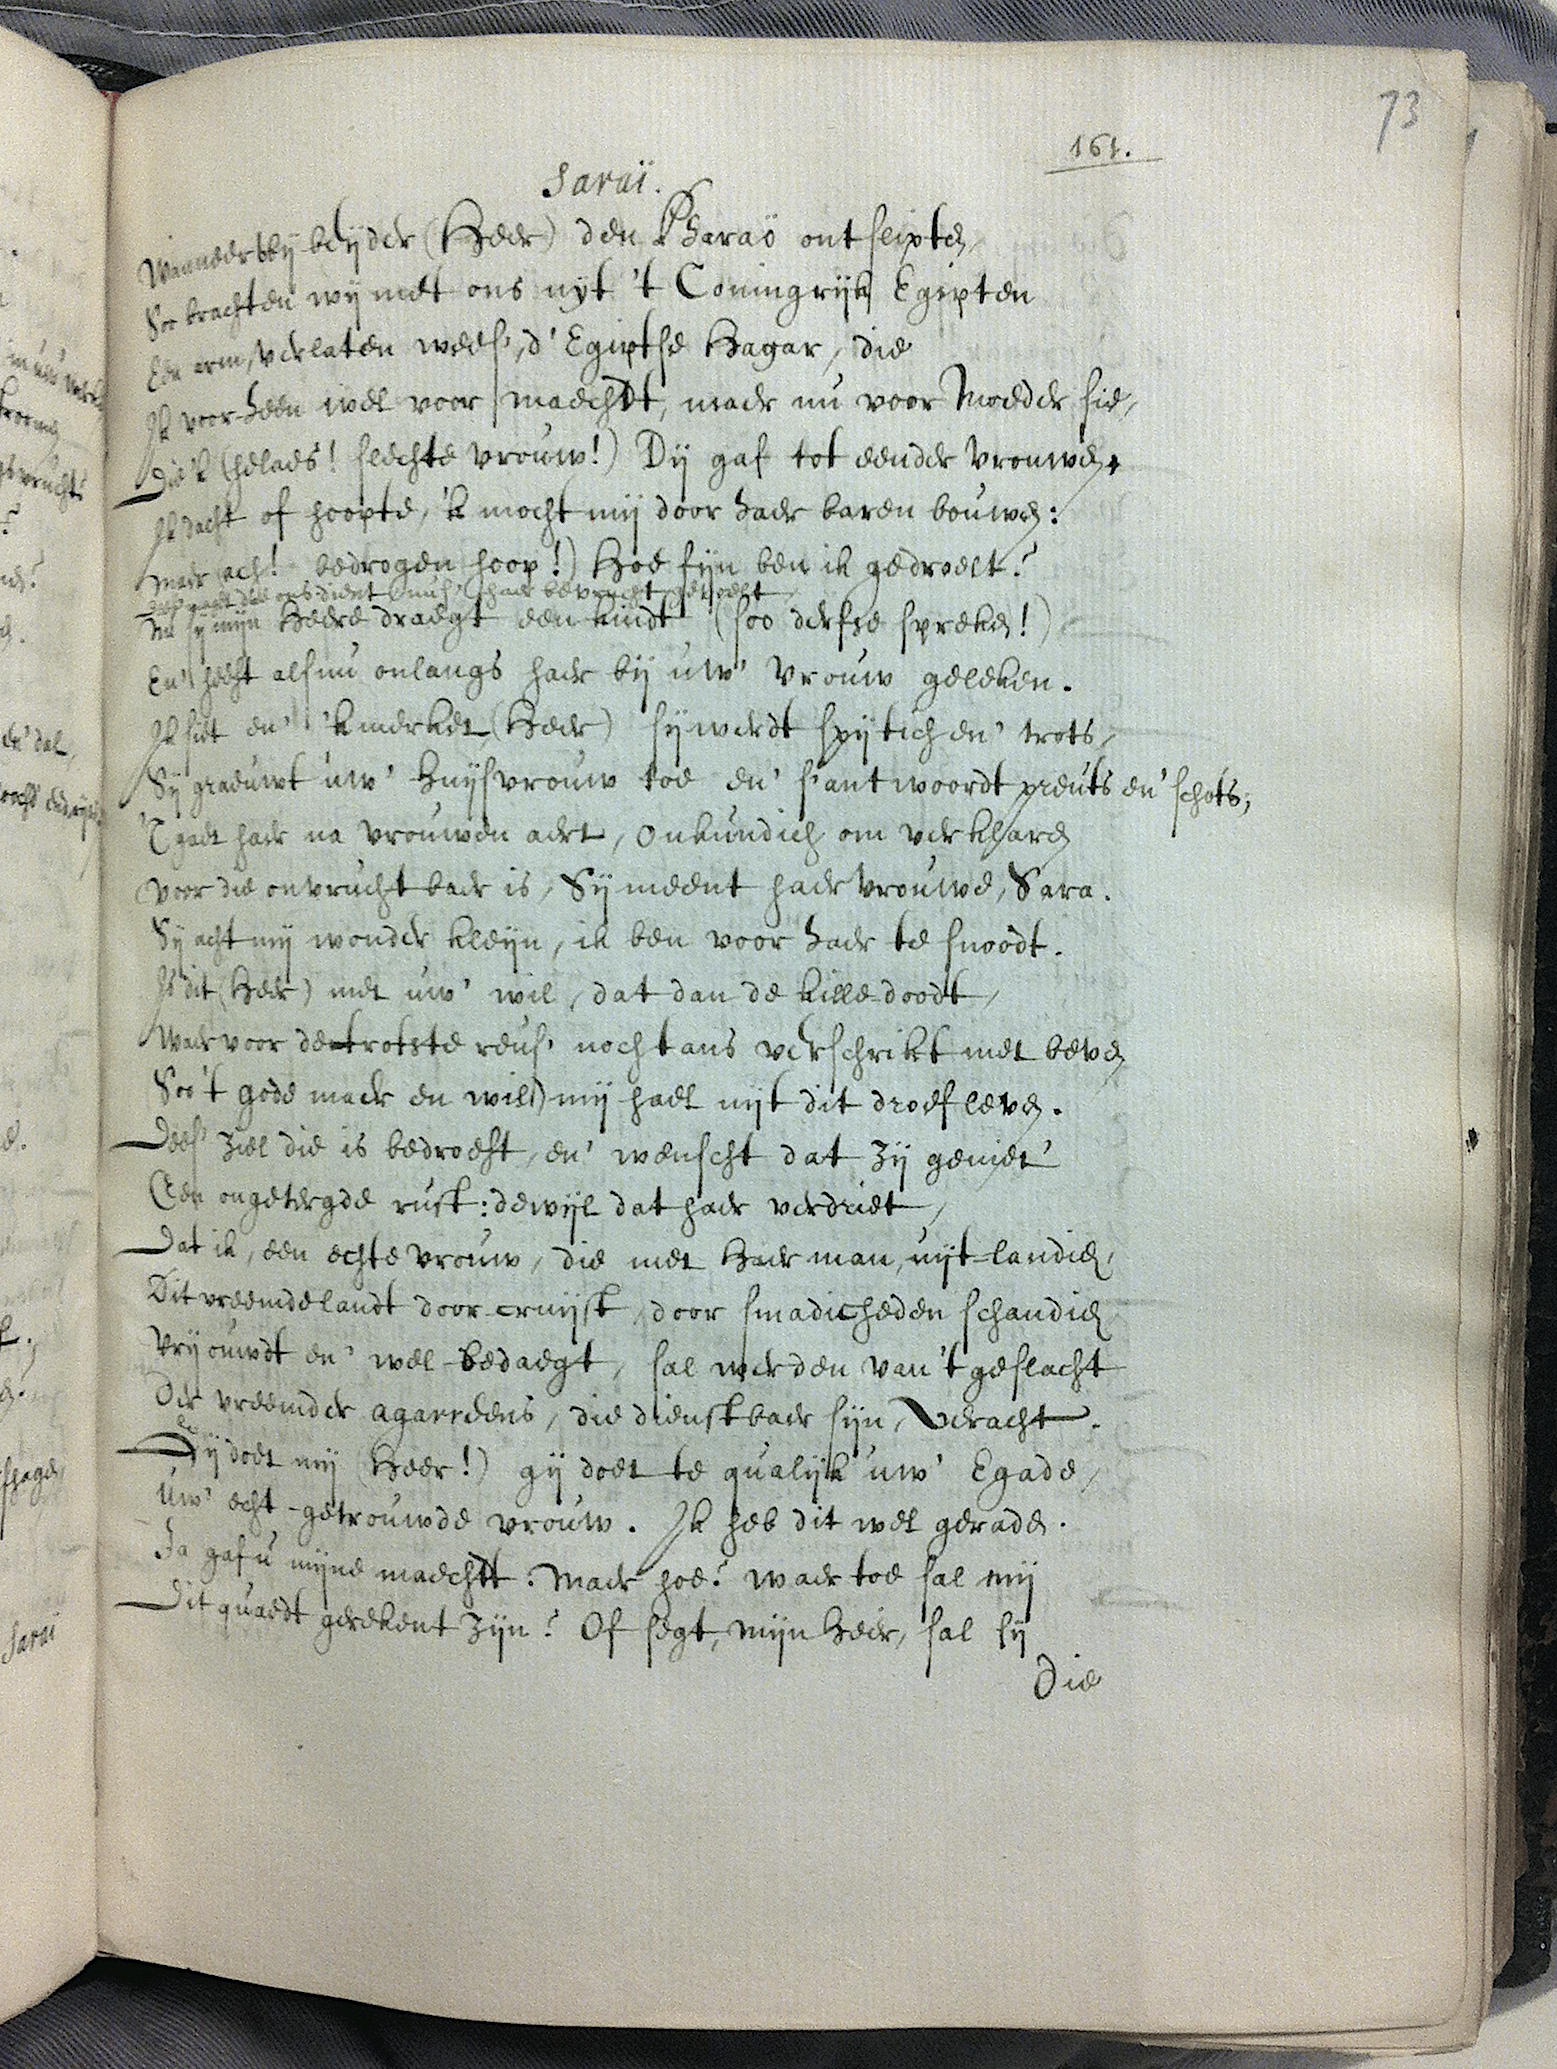 73
161.
Saraï.
Wanneer wy beyder (Heer) den Pharaö ontslipten,
Soo brachten wij met ons uyt 't Coningrijk Egipten
Een arm, verlaten wees', d' Egiptse Hagar, die
Ik voor-heen wel voor maechdt, maer nu voor Moeder sie,
Die 'k (helaes! slechte vrouw!) Dij gaf tot eender vrouwen,
Ik dacht of hoopte, 'k mocht mij door haer baren bouwen:
Maer (ach! bedrogen hoop!) Hoe fijn ben ik gedroelt?
ons dient haer bevrucht gevoelt
Nu sy mijn Heere draegt een kindt (soo derfse spreken!)
En' heeft alsnu onlangs haer bij uw' vrouw geleken.
Ik siet en' 'k merket, (Heer) sij werdt spijtich en' trots,
Sij graeuwt uw' Huijsvrouw toe en' s'antwoordt preuts en' schots;
'T gaet haer na vrouwen aert, onkundich om verklaren
Voor die onvruchtbaer is, Sij meent haer vrouwe, Sara.
Sij acht mij wonder kleijn, ik ben voor haer te snoodt.
Is dit (Heer) met uw' wil, dat dan de kille doodt,
Waer voor de trotste reus' nochtans verschrikt met beven
Soo 't gode maer en wil) mij hael uijt dit droef leven.
Dees' ziel die is bedroeft, en' wenscht dat zij geniet'
Een ongetergde rust: dewijl dat haer verdriet,
Dat ik, een echte vrouw, die met Haer man, uijt-landich,
Dit vreemde landt door-cruijst, door smadicheden schandich
Vrij ouwdt en' wel-bedaegt, sal werden van 't geslacht
Der vreemder agareens, die dienstbaer sijn, Veracht.
Gij doet mij (Heer!) gij doet te qualijk uw' Egade,
Uw' echt-getrouwde vrouw. Ik heb dit wel geraden.
Ja gaf u mijne maechdt. Maer hoe? waer toe sal mij
Dit quaedt gerekent zijn? Of segt, mijn Heer, sal sij
Die
Sarai